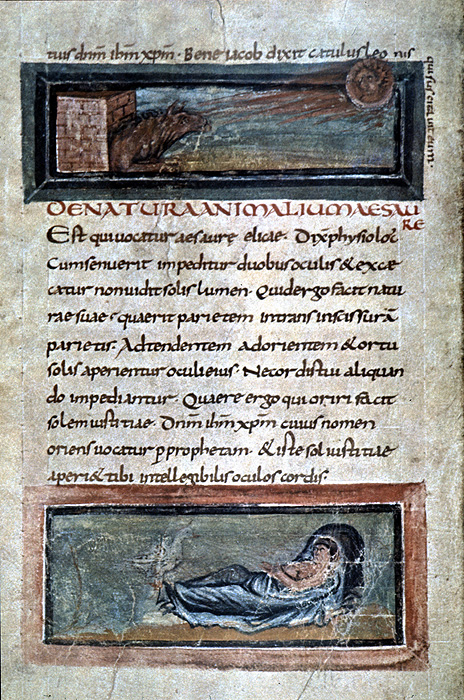 tuis dnm ihm xpm · Bene iacob dixit catulus leonis
qui suscitavit eum ·
DE NATURA ANIMALIUM AESAURE
Est qui vocatur aesaure eliace · Dix physiolo
Cum senuerit impeditur duobus oculis & exce
catur non vidit solis lumen · Quid ergo facit natu
rae suae · quaerit parietem intrans in scissurā
parietis · Adtendentem ad orientem & ortu
solis aperientur oculi eius · Necor dis tui aliquan
do impediantur · Quaere ergo qui oriri facit
solem iustitiae · Dnm ihm xpm cuius nomen
oriens vocatur p prophetam · & iste sol iustitiae
aperi& tibi intellegibilis oculos cordis ·